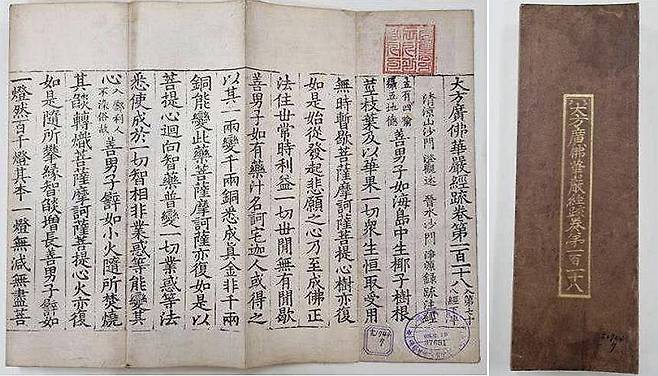 大方廣佛華嚴經疏卷第一百二十八 入第七十八經半
清涼山沙門 澄觀述 晉水沙門 淨源錄疏注經
四喻攝五地德 善男子如海島中生椰子樹根
莖枝葉及以華果一切衆生恒取受用
無時暫歇菩薩摩訶薩菩提心樹亦復
如是始從發起悲願之心乃至成佛正
法住世常時利益一切世間無有閒歇
善男子如有藥汁名訶宅迦人或得之
以其一兩變千兩銅悉成真金非千兩
銅能變此藥菩薩摩訶薩亦復如是以
菩提心迴向智藥普變一切業惑等法
悉使成於一切智相非業惑等能變其
心 入鄽利人不染俗故 善男子譬如小火隨所焚燒
其燄轉熾菩薩摩訶薩菩提心火亦復
如是隨所攀緣智燄增長善男子譬如
一燈然百千燈其本一燈無減無盡菩
37691
大方廣佛華嚴經疏卷第一百二十八